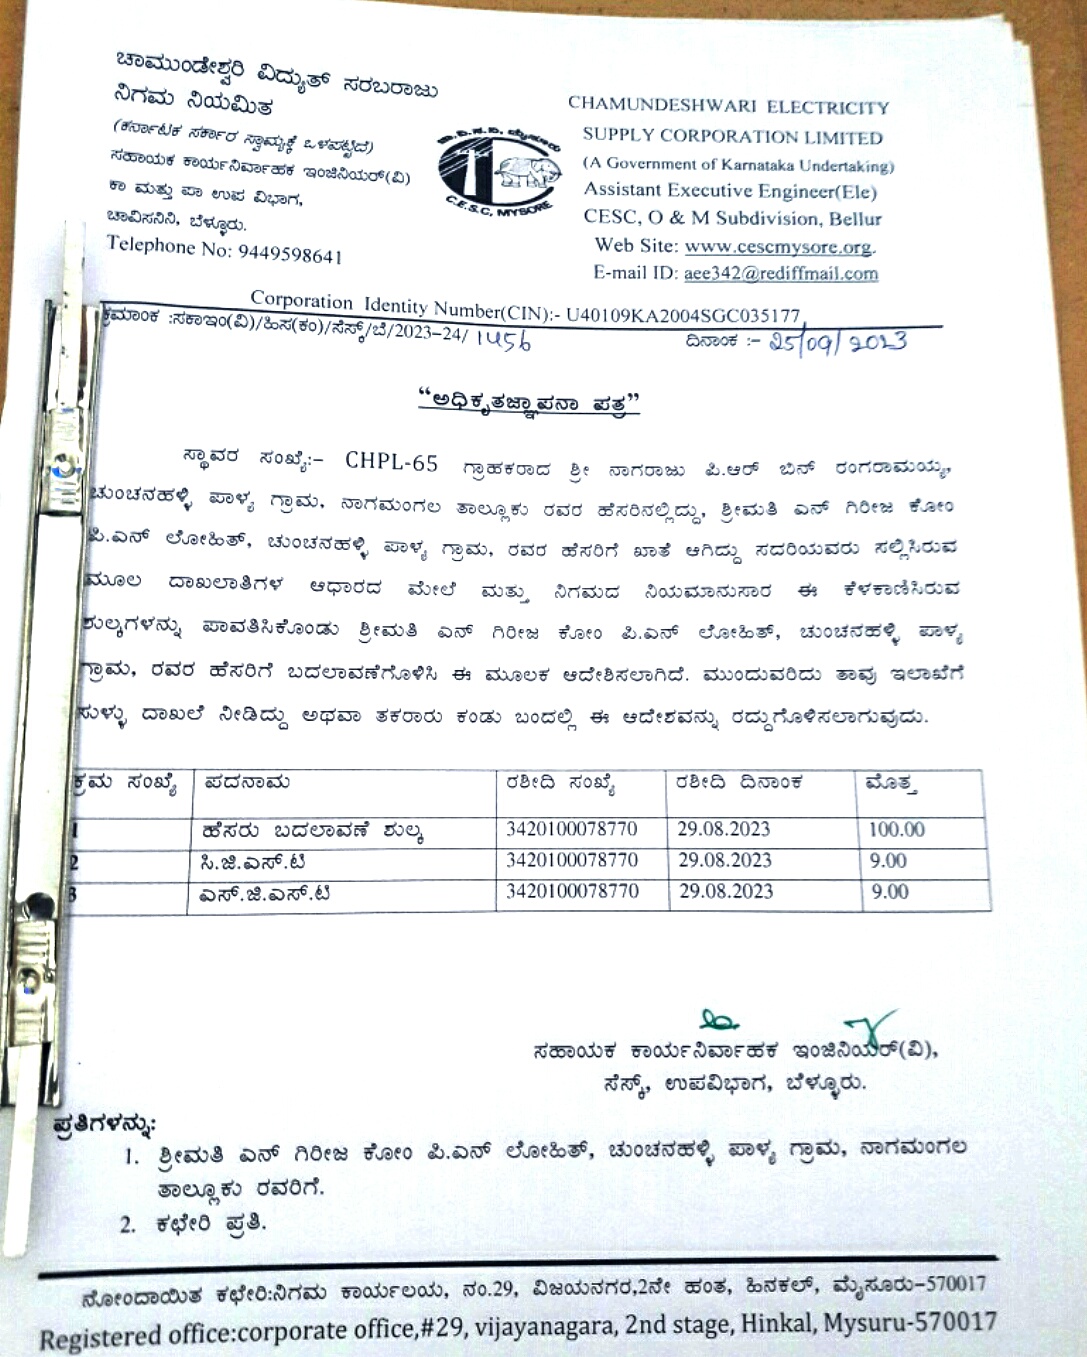 ಚಾಮುಂಡೇಶ್ವರಿ ವಿದ್ಯುತ್ ಸರಬರಾಜು
ನಿಗಮ ನಿಯಮಿತ
(ಕರ್ನಾಟಕ ಸರ್ಕಾರ ಸ್ವಾಮ್ಯಕ್ಕೆ ಒಳಪಟ್ಟಿದೆ)
ಸಹಾಯಕ ಕಾರ್ಯನಿರ್ವಾಹಕ ಇಂಜಿನಿಯರ್(ವಿ)
ಕಾ ಮತ್ತು ಪಾ ಉಪ ವಿಭಾಗ,
ಚಾವಿಸನಿನಿ, ಬೆಳ್ಳೂರು.
Telephone No: 9449598641
ಚಾ.ವಿ.ಸ.ನಿ. ಮೈಸೂರು
C.E.S.C, MYSORE
CHAMUNDESHWARI ELECTRICITY
SUPPLY CORPORATION LIMITED
(A Government of Karnataka Undertaking)
Assistant Executive Engineer(Ele)
CESC, O & M Subdivision, Bellur
Web Site: www.cescmysore.org.
E-mail ID: aee342@rediffmail.com
Corporation Identity Number(CIN):- U40109KA2004SGC035177
ಕ್ರಮಾಂಕ :ಸಕಾಇಂ(ವಿ)/ಹಿಸ(ಕಂ)/ಸೆಸ್ಕ್/ಬೆ/2023–24/ 1456 ದಿನಾಂಕ :– 25/09/2023
“ಅಧಿಕೃತಜ್ಞಾಪನಾ ಪತ್ರ”
ಸ್ಥಾವರ ಸಂಖ್ಯೆ:– CHPL-65 ಗ್ರಾಹಕರಾದ ಶ್ರೀ ನಾಗರಾಜು ಪಿ.ಆರ್ ಬಿನ್ ರಂಗರಾಮಯ್ಯ,
ಚುಂಚನಹಳ್ಳಿ ಪಾಳ್ಯ ಗ್ರಾಮ, ನಾಗಮಂಗಲ ತಾಲ್ಲೂಕು ರವರ ಹೆಸರಿನಲ್ಲಿದ್ದು, ಶ್ರೀಮತಿ ಎನ್ ಗಿರೀಜ ಕೋಂ
ಪಿ.ಎನ್ ಲೋಹಿತ್, ಚುಂಚನಹಳ್ಳಿ ಪಾಳ್ಯ ಗ್ರಾಮ, ರವರ ಹೆಸರಿಗೆ ಖಾತೆ ಆಗಿದ್ದು ಸದರಿಯವರು ಸಲ್ಲಿಸಿರುವ
ಮೂಲ ದಾಖಲಾತಿಗಳ ಆಧಾರದ ಮೇಲೆ ಮತ್ತು ನಿಗಮದ ನಿಯಮಾನುಸಾರ ಈ ಕೆಳಕಾಣಿಸಿರುವ
ಶುಲ್ಕಗಳನ್ನು ಪಾವತಿಸಿಕೊಂಡು ಶ್ರೀಮತಿ ಎನ್ ಗಿರೀಜ ಕೋಂ ಪಿ.ಎನ್ ಲೋಹಿತ್, ಚುಂಚನಹಳ್ಳಿ ಪಾಳ್ಯ
ಗ್ರಾಮ, ರವರ ಹೆಸರಿಗೆ ಬದಲಾವಣೆಗೊಳಿಸಿ ಈ ಮೂಲಕ ಆದೇಶಿಸಲಾಗಿದೆ. ಮುಂದುವರಿದು ತಾವು ಇಲಾಖೆಗೆ
ಸುಳ್ಳು ದಾಖಲೆ ನೀಡಿದ್ದು ಅಥವಾ ತಕರಾರು ಕಂಡು ಬಂದಲ್ಲಿ ಈ ಆದೇಶವನ್ನು ರದ್ದುಗೊಳಿಸಲಾಗುವುದು.
ಕ್ರಮ ಸಂಖ್ಯೆ ಪದನಾಮ ರಶೀದಿ ಸಂಖ್ಯೆ ರಶೀದಿ ದಿನಾಂಕ ಮೊತ್ತ
1 ಹೆಸರು ಬದಲಾವಣೆ ಶುಲ್ಕ 3420100078770 29.08.2023 100.00
2 ಸಿ.ಜಿ.ಎಸ್.ಟಿ 3420100078770 29.08.2023 9.00
3 ಎಸ್.ಜಿ.ಎಸ್.ಟಿ 3420100078770 29.08.2023 9.00
ಸಹಾಯಕ ಕಾರ್ಯನಿರ್ವಾಹಕ ಇಂಜಿನಿಯರ್(ವಿ),
ಸೆಸ್ಕ್, ಉಪವಿಭಾಗ, ಬೆಳ್ಳೂರು.
ಪ್ರತಿಗಳನ್ನು:
1. ಶ್ರೀಮತಿ ಎನ್ ಗಿರೀಜ ಕೋಂ ಪಿ.ಎನ್ ಲೋಹಿತ್, ಚುಂಚನಹಳ್ಳಿ ಪಾಳ್ಯ ಗ್ರಾಮ, ನಾಗಮಂಗಲ
ತಾಲ್ಲೂಕು ರವರಿಗೆ.
2. ಕಛೇರಿ ಪ್ರತಿ.
ನೋಂದಾಯಿತ ಕಛೇರಿ:ನಿಗಮ ಕಾರ್ಯಲಯ, ನಂ.29, ವಿಜಯನಗರ,2ನೇ ಹಂತ, ಹಿನಕಲ್, ಮೈಸೂರು–570017
Registered office:corporate office,#29, vijayanagara, 2nd stage, Hinkal, Mysuru-570017